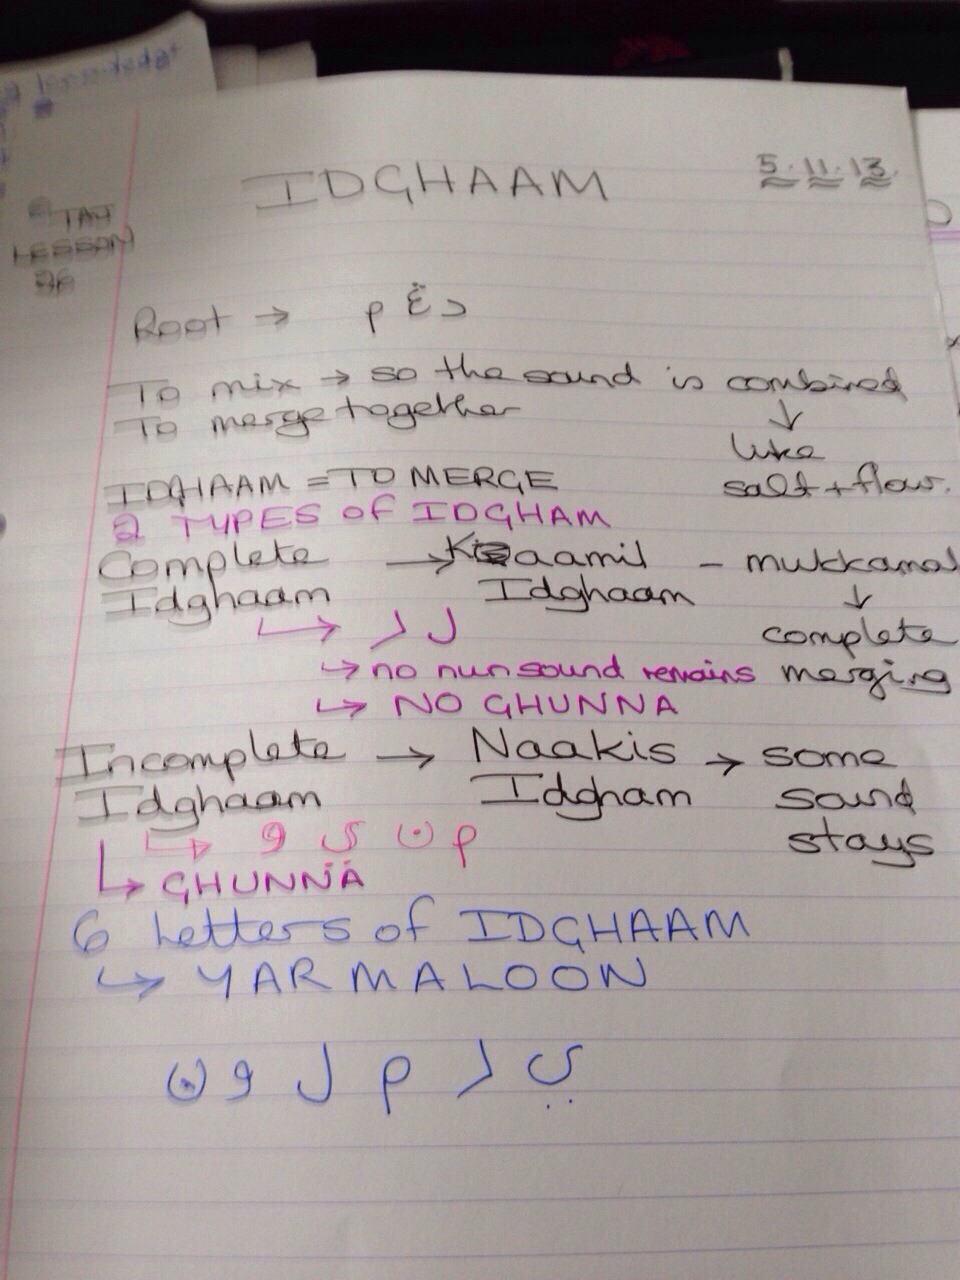 IDGHAAM
5.11.13.
TAJ
LESSON
Root → د غ م
To mix → so the sound is combined
To merge together
↓
like
salt + flour.
IDGHAAM = TO MERGE
2 TYPES of IDGHAM
Complete → Kaamil – mukkamal
Idghaam Idghaam ↓
↳ ر ل complete
↳ no nun sound remains merging
↳ NO GHUNNA
Incomplete → Naakis → some
Idghaam Idgham sound
↳ و ى ن م stays
↳ GHUNNA
6 Letters of IDGHAAM
↳ YARMALOON
ي ر م ل و ن